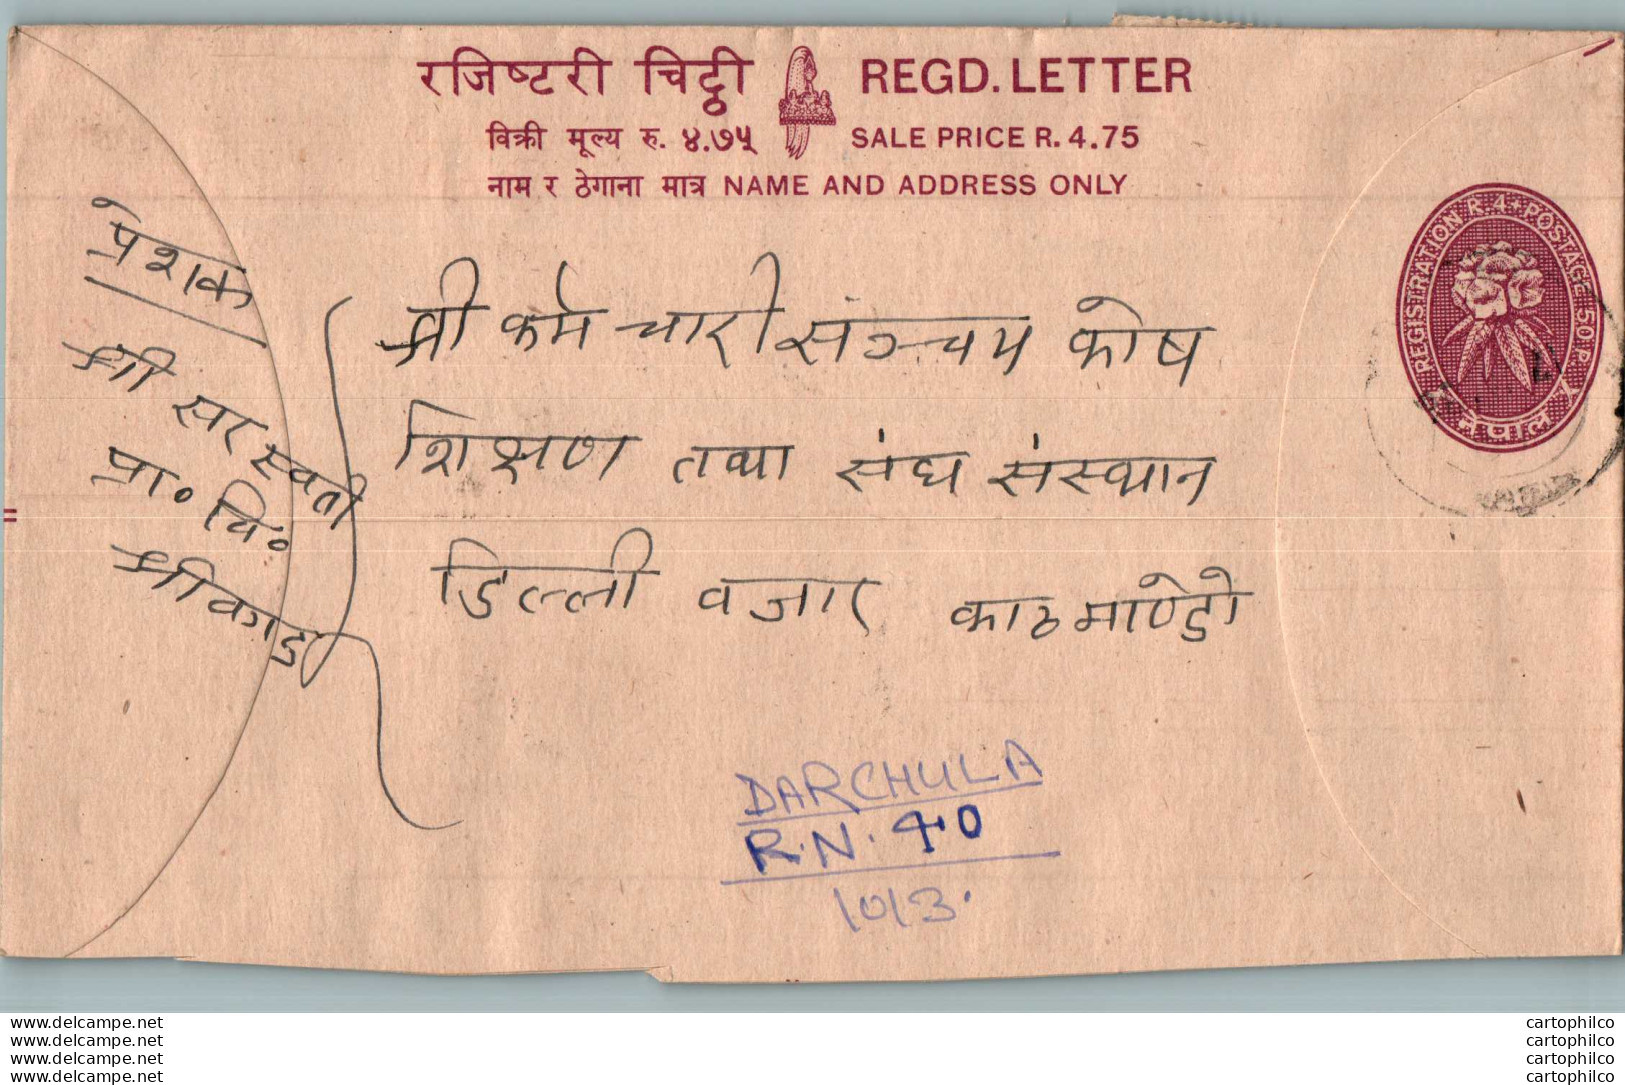 रजिष्टरी चिट्ठी REGD. LETTER
विक्री मूल्य रु. ४.७५ SALE PRICE R. 4.75
नाम र ठेगाना मात्र NAME AND ADDRESS ONLY
REGISTRATION R. 4 + POSTAGE 50 P.
नेपाल
प्रेशक
श्री सरस्वती
प्रा० वि०
श्रीकाडा
श्री कर्मचारी संञ्चय कोष
शिक्षण तथा संघ संस्थान
डिल्ली वजार काठमाण्डो
DARCHULA
R.N. 40
10/3.
www.delcampe.net
www.delcampe.net
www.delcampe.net
www.delcampe.net
cartophilco
cartophilco
cartophilco
cartophilco